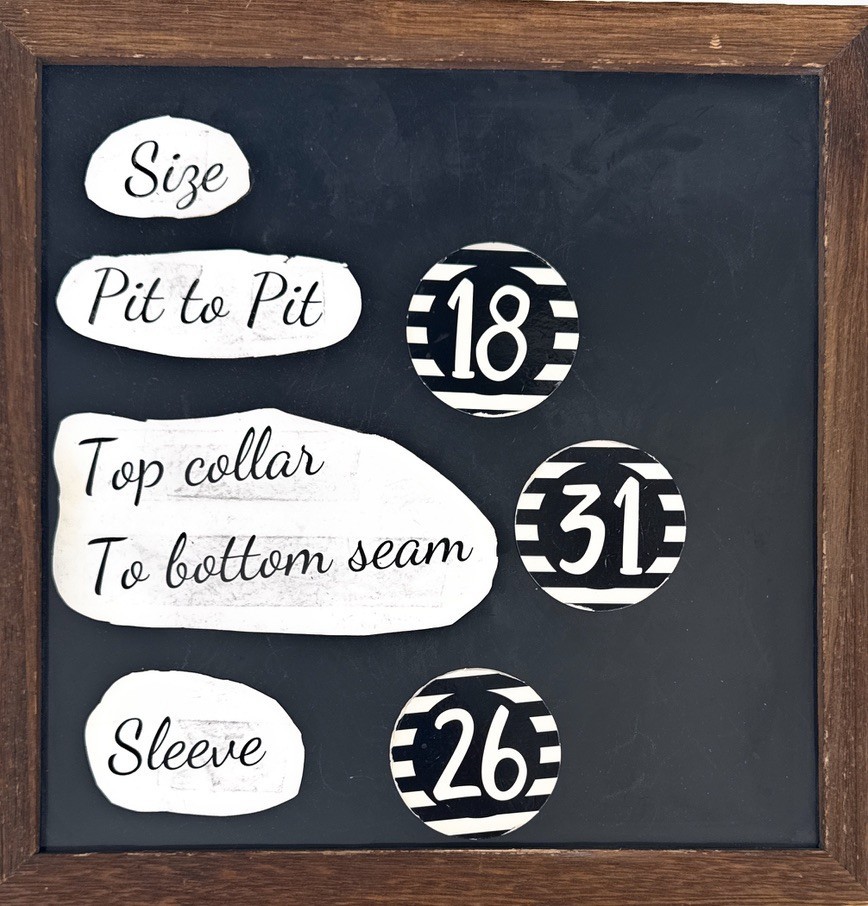 Size
Pit to Pit 18
Top collar
To bottom seam 31
Sleeve 26